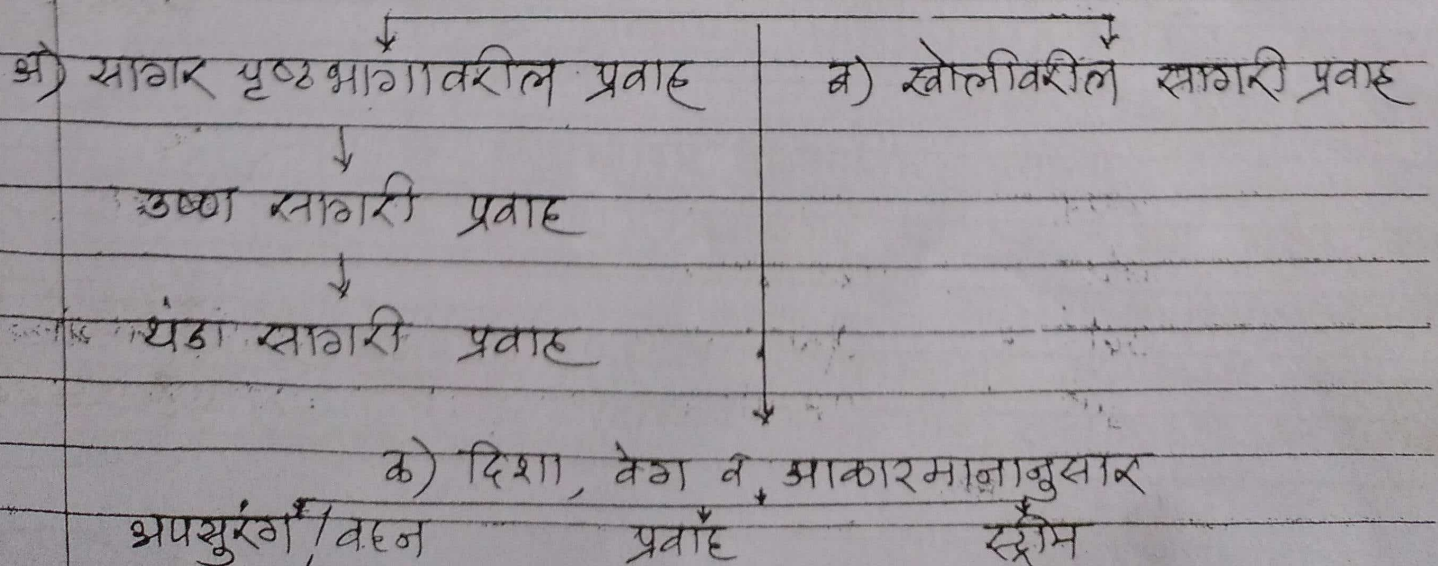 अ) सागर पृष्ठभागावरील प्रवाह ब) खोलीवरील सागरी प्रवाह
उष्ण सागरी प्रवाह
थंड सागरी प्रवाह
क) दिशा, वेग व आकारमानानुसार
अपसुरंग / वहन प्रवाह स्ट्रीम